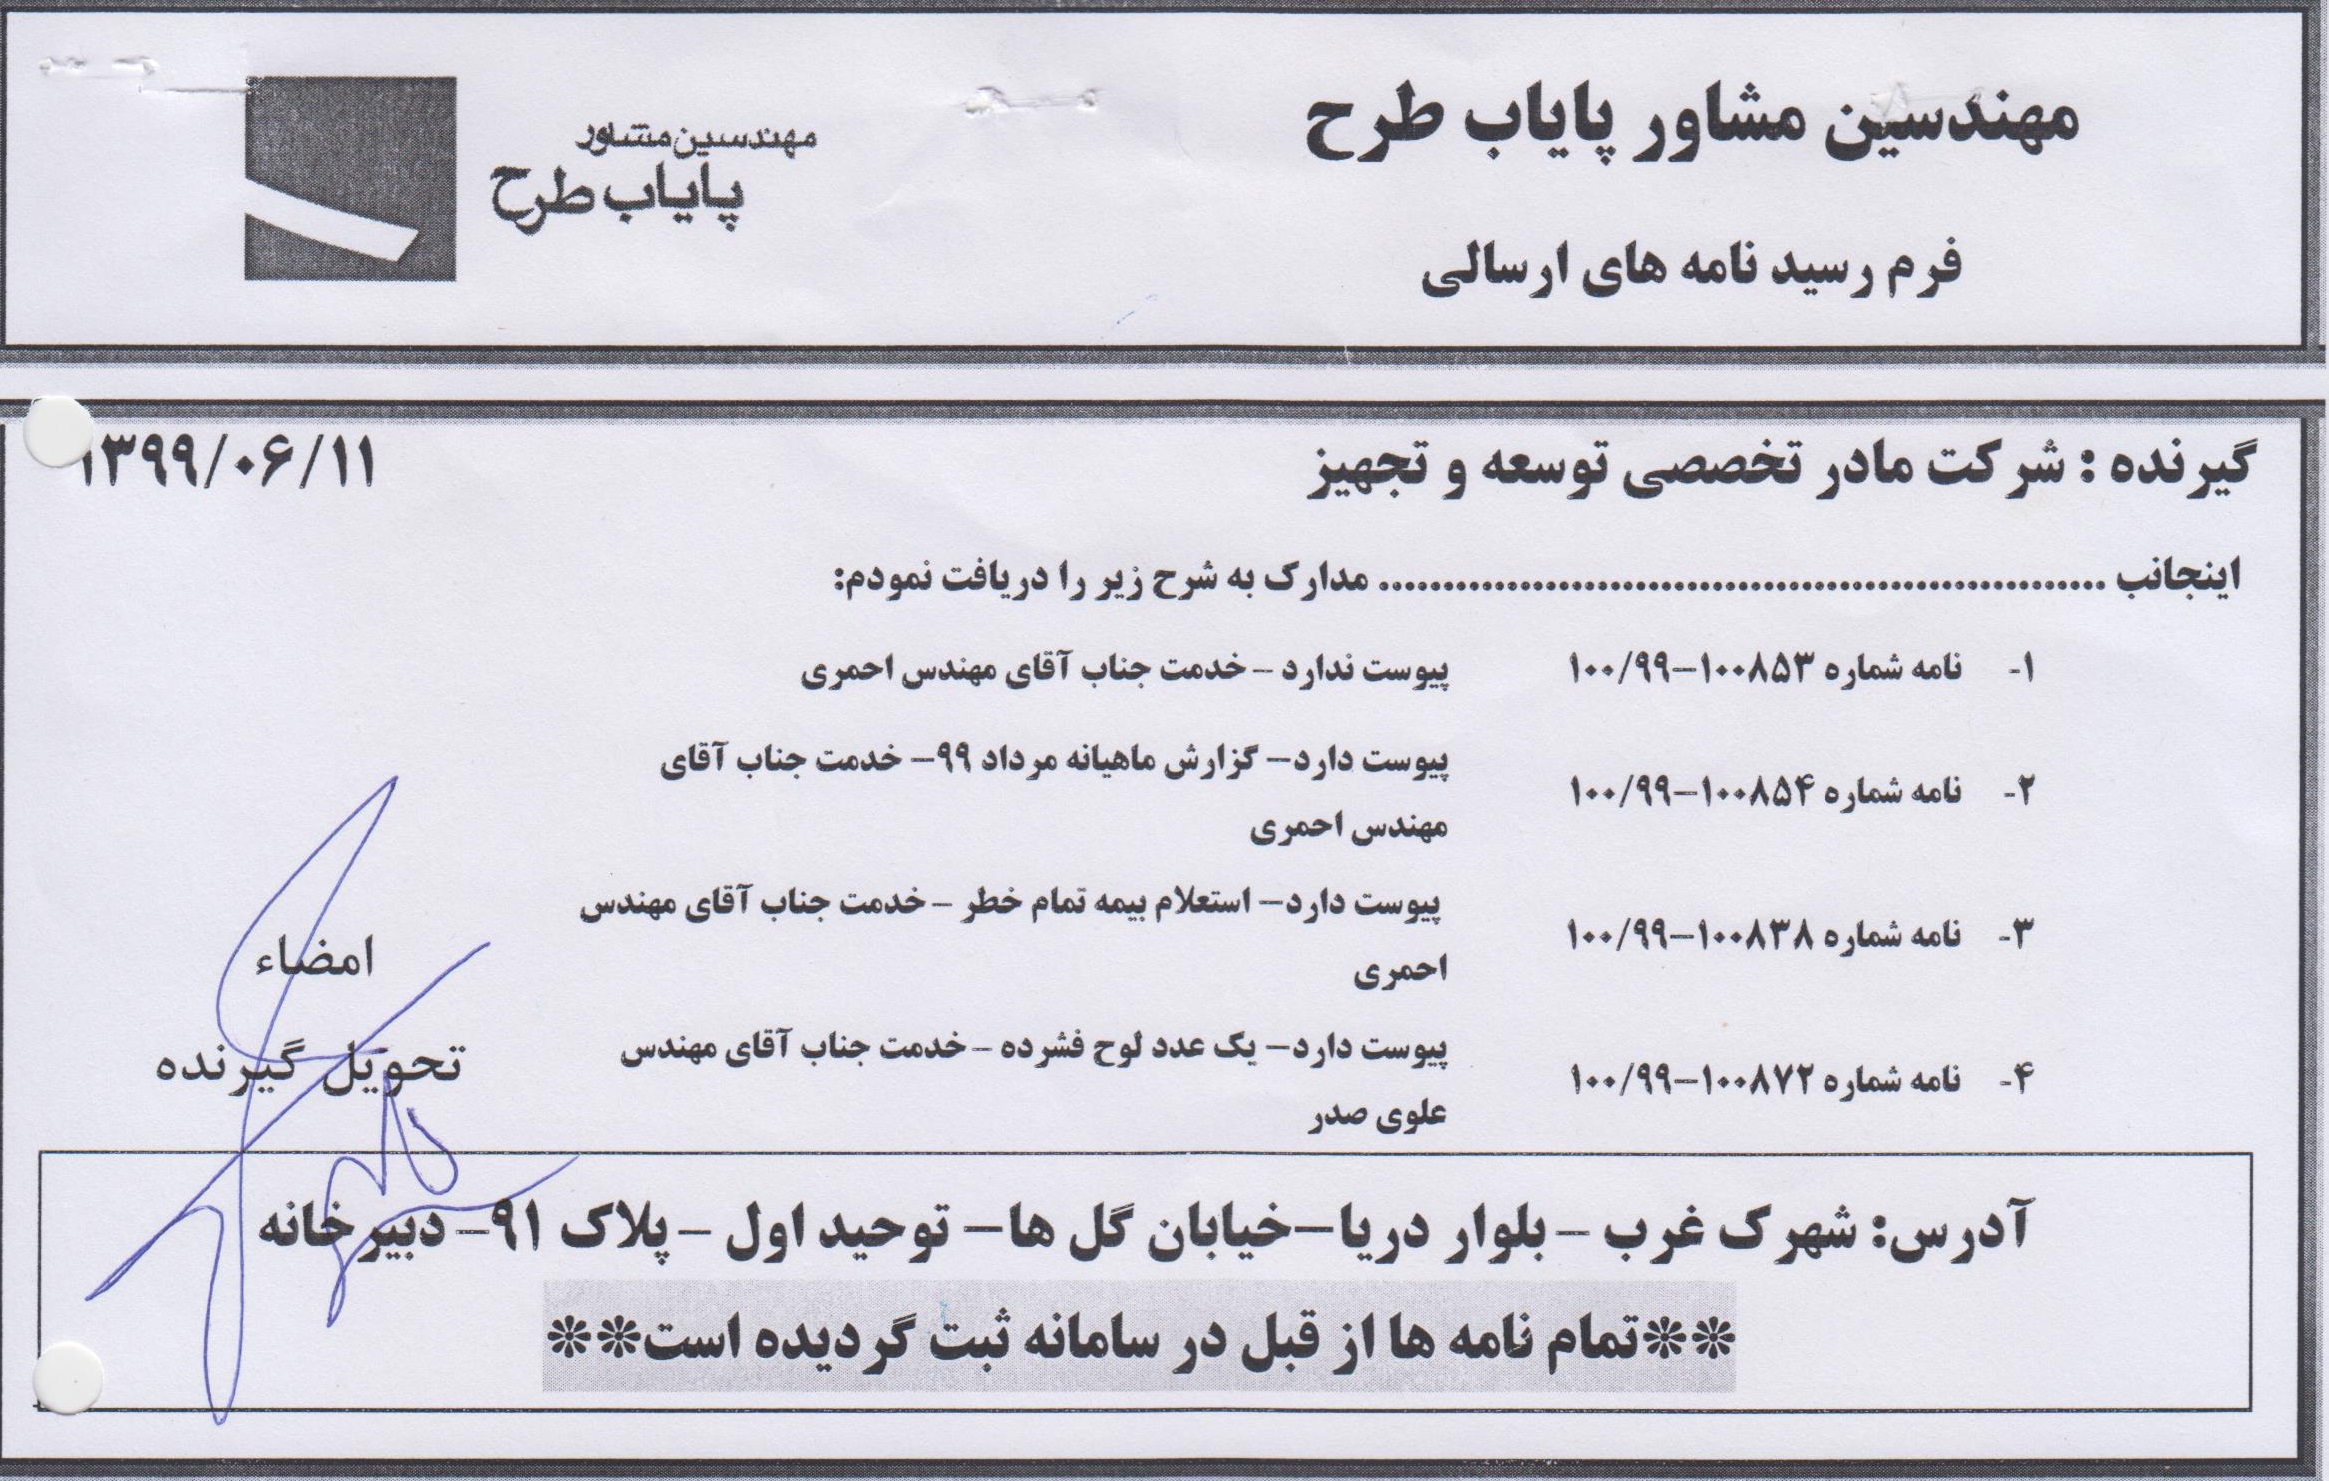 مهندسین مشاور پایاب طرح
مهندسین مشاور
پایاب طرح
فرم رسید نامه های ارسالی
گیرنده : شرکت مادر تخصصی توسعه و تجهیز
۱۳۹۹/۰۶/۱۱
اینجانب ........................................................ مدارک به شرح زیر را دریافت نمودم:
۱- نامه شماره ۱۰۰۸۵۳-۱۰۰/۹۹ پیوست ندارد – خدمت جناب آقای مهندس احمری
۲- نامه شماره ۱۰۰۸۵۴-۱۰۰/۹۹ پیوست دارد- گزارش ماهیانه مرداد ۹۹- خدمت جناب آقای
مهندس احمری
۳- نامه شماره ۱۰۰۸۳۸-۱۰۰/۹۹ پیوست دارد- استعلام بیمه تمام خطر – خدمت جناب آقای مهندس
احمری
۴- نامه شماره ۱۰۰۸۷۲-۱۰۰/۹۹ پیوست دارد- یک عدد لوح فشرده – خدمت جناب آقای مهندس
علوی صدر
امضاء
تحویل گیرنده
آدرس: شهرک غرب – بلوار دریا-خیابان گل ها- توحید اول – پلاک ۹۱- دبیرخانه
**تمام نامه ها از قبل در سامانه ثبت گردیده است**